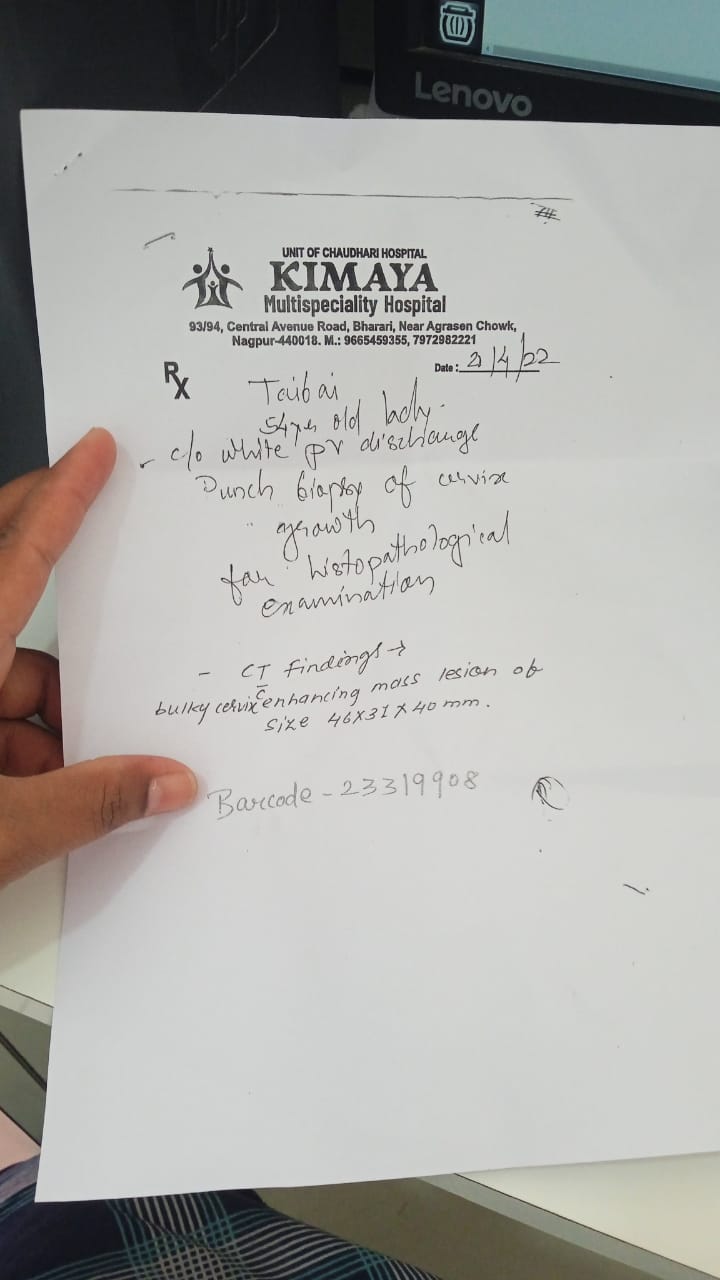 Lenovo
UNIT OF CHAUDHARI HOSPITAL
KIMAYA
Multispeciality Hospital
93/94, Central Avenue Road, Bharari, Near Agrasen Chowk,
Nagpur-440018. M.: 9665459355, 7972982221
Date: 2/4/22
Rx
Taibai
54 yrs old lady.
- c/o white pv discharge
Punch biopsy of cervix
" growth
for histopathological
examination
- CT findings →
bulky cervix c̄ enhancing mass lesion of
size 46X31X40 mm.
Barcode - 23319908